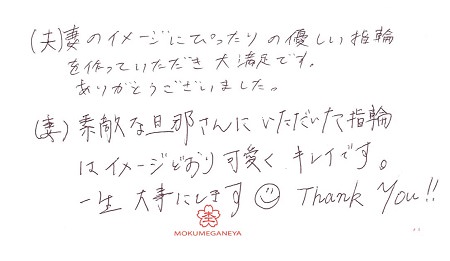 (夫)妻のイメージにぴったりの優しい指輪
を作っていただき大満足です。
ありがとうございました。
(妻)素敵な旦那さんにいただいた指輪
はイメージどおり可愛くキレイです。
一生大事にします☺ Thank You!!
MOKUMEGANEYA